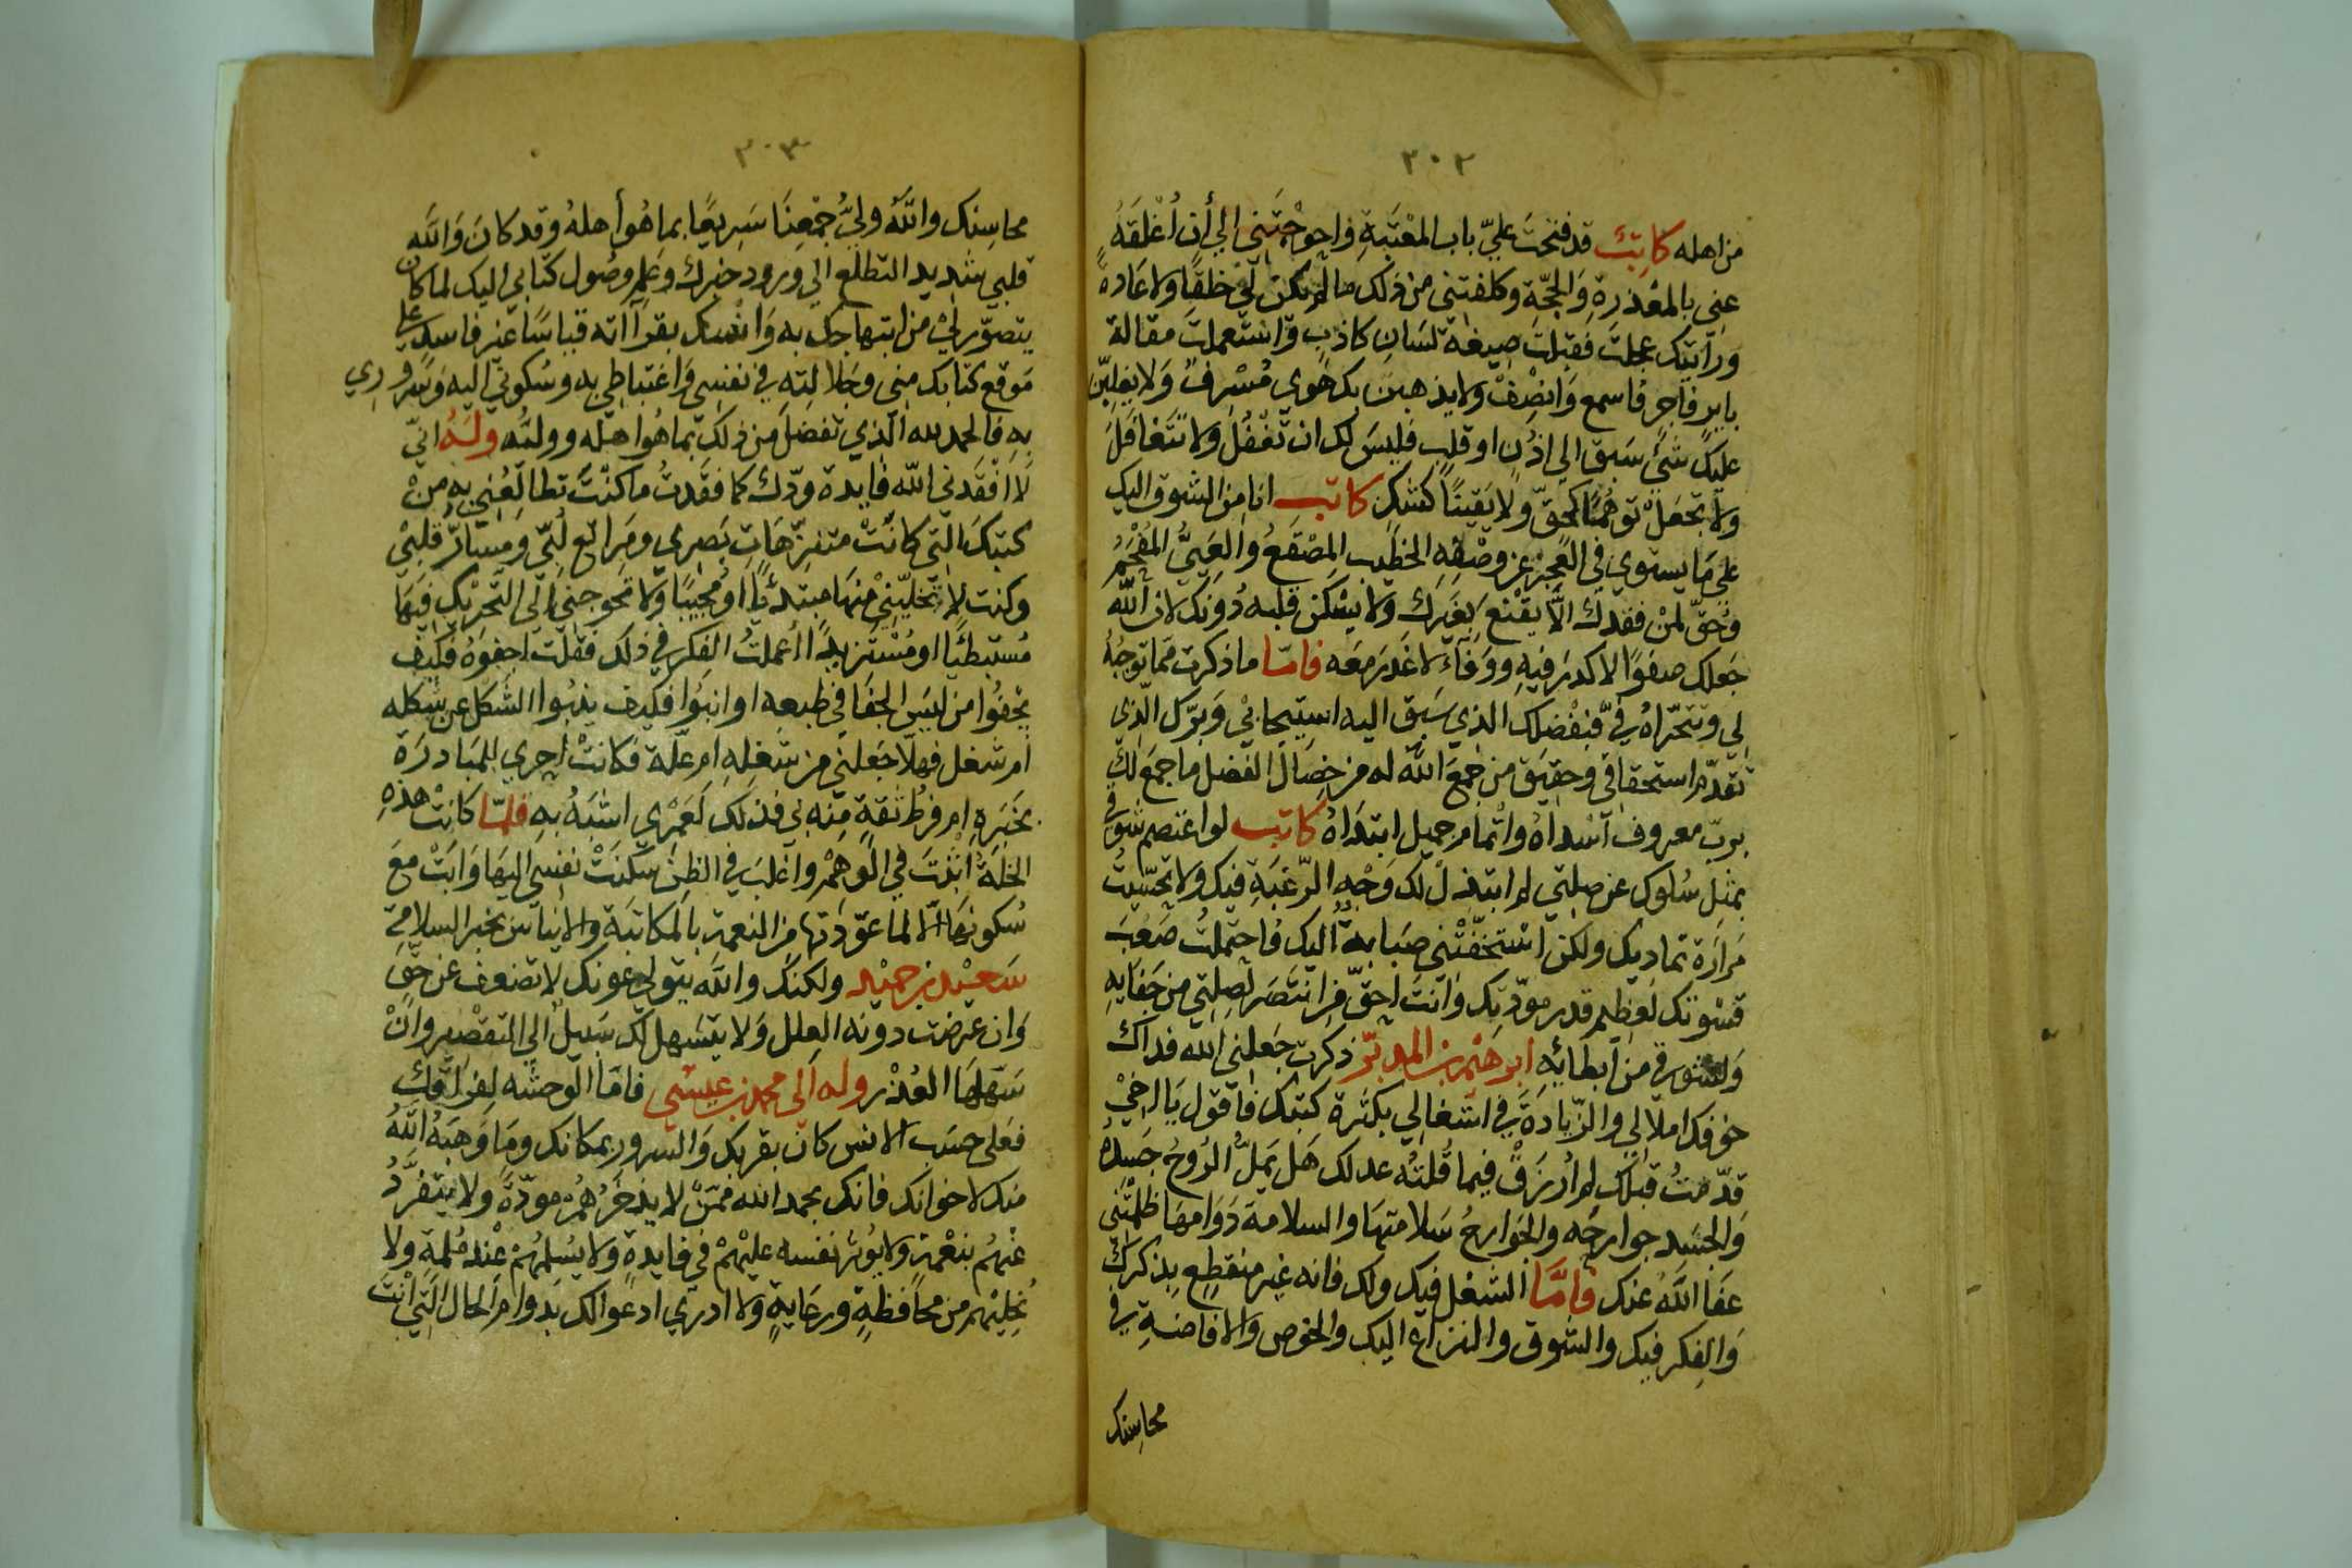 ٣٠٢
من اهله كاتبٌ قد فتحتَ عليّ باب المعْتَبَةِ واحوجْتَني الي أن اُغْلِقَهُ
عني بالمعْذرةِ وَالحجّة وكلفتني من ذلك ما لم يكن لي خلقًا ولا عَادةً
وراَيتك عجلتَ فقبلتَ صيغة لسَانٍ كاذبٍ وَاستعملتَ مقالة
فاجرٍ فاسمع وَانصِفْ ولا يذهبن بك هَوي مُسْرِفٌ وَلا يغلبنّ
عليكَ شئ سَبق الي اذُنٍ او قلبٍ فليسَ لك ان تَغْفُلَ وَلا تَتَغافَلَ
ولا تجعَلْ توهُّمًا كحقّ وَّلا يَقينًا كشكٍ كاتب انا من الشوق اليك
علي مَا يستوي في العجز عن وصْفِهِ الخطيب المِصْقَعُ وَالعَييُّ المُفْحَمُ
وحُقّ لمَنْ فقدكَ الّا يقْنَع بغيرك ولا يسْكن قلبه دُونك لان الله
جَعلك صفوًا لا كدرَ فيهِ ووَفآءً لا غَدرَ معَه فامّا ما ذكرت مما توجبُهُ
لي وتتحرّاهُ فيَّ فبفضلك الذي سَبق اليه استيجابي وَبرّك الّذِي
تقدّم استحقاقي وحقيق من جمعَ اللهُ له من خصَال الفضل ما جمعَ لكَ
بربّ معروف آسْداهُ واتْمام جميل ابتَدَاهُ كاتب لو اعتصم شوقي
بمثل سُلوك عن صلتي لم ابتذل لك وَجْه الرّغبَةِ فيك ولا تحسّيتُ
مَرارَة تماديك ولكن استخفّتْني صَبابةٌ اليك فاحتملتُ صَعْبَ
قسْوتك لعظيم قدر مودّتِك وَانتَ احقّ من انتصَر لصِلتي من جَفايهِ
وَلشوقي من اَبطائِهِ ابرهيم بن المدبّر ذكرت جَعلني الله فداك
خوفك املالي والزّيادَةَ في اشتغالي بكثرة كتبك فاَقول يَا اخيْ
قدّمتُ قبلك لم اُرزَقْ فيما قُلتُه عدلك هَل يَملُّ الرُوحُ جَسَدهُ
وَالجسَد جوارحَه والجَوارحُ سَلامتهَا والسلامة دَوَامهَا ظلمْتَني
عَفَا اللهُ عنك فَامَّا الشغل فيك ولك فانه غير منقطعٍ بذكرك
وَالفِكر فيك والشوق والنزاع اليك والخوص والافاضةِ في
محاسِنك
٣٠٣
محاسِنك واللهُ وليُّ جَمْعِنَا سَرِيعًا بما هُو أهلهُ وقد كانَ وَاللهِ
قلبي شديد التطلع الي ورود خبرك وعَلم وصُول كتابي اليك لما كان
يتصوّر لي من ابتهاجك به وَانسك بقرآاته قياسًا غير فاسدٍ علي
مَوقع كتابك مني وجَلالتِهِ في نفسِي وَاغتباطِي به وسُكوني اليه وَسُرورِي
بهِ فالحمد لله الّذي تفضلَ من ذلك بما هُو اهله ووليّه وله انّي
لا افْقَدني الله فايدة ودّك كما فقَدتُ ما كنْتَ تطالِعُني به منْ
كتبكَ التي كانَتْ متنزّهَاتِ بَصرِي ومَراتع لُبّي وَمسَارّ قلبيْ
وكنت لا تخليّنيْ منهَا مبتدئاً او مُجيبًا ولا تحوجني الي التحريك فيهَا
مُستبطئًا او مُسْتزيدًا اعملتُ الفكر في ذلك فقلت اجفوَهٌ فكيف
يَجْفُوا من ليسَ الجفَا في طبعه او انبُوا فكيف ينبُوا الشكل عن شكله
اَم شغل فهلّا جَعلني من شغلِهِ ام علّة فكانتْ احري بالمبَادرَة
بخَبرهِ ام فرطُ ثقةٍ منه بي فذلك لَعَمْري اشبَهُ بهِ فلمّا كانت هذهِ
الخلّةُ اثْبَتَ في الوهْم وآغلبَ في الظن سَكنَتْ نفسي اليها وَابَتْ معَ
سُكونهَا الّا لما عوّدتها من النعمة بالمكاتبَة والايناس بخبر السلامَةِ
سَعيْد بن حميْد ولكنكَ والله يتولي عونك لا تضعف عن حقٍّ
وَان عرضت دونه العِلل وَلا يتسَهل لك سَبيلٌ الي التقصْير وانْ
سَهلهَا العُذْر وله الي محمد بن عيسي فامّا الوحشه لفراقك
فعَلي حسَب الانس كان بقربك وَالسرور بمكانك ومَا وَهَبَهُ اللهُ
منك لاخوانك فانك بحمد الله ممّنْ لا يذخرُهُمْ مودّةً ولا يتفرَّدُ
عنهُم بنعْمةٍ ولا يوثر نفسه عليْهمْ في فايدةٍ ولا يُسْلمهُمْ عنْد مُلمةٍ ولا
يُخليْهم من محافظةٍ ورعَايةٍ ولا ادري ادعوا لك بدَوام الحال الَّتي انْتَ